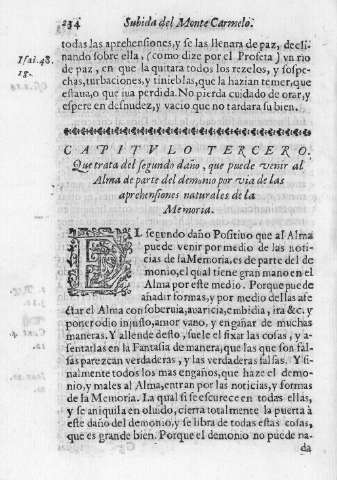 234 Subida del Monte Carmelo.
todas las aprehensiones, y se llenara de paz, decli-
Isai. 48. nando sobre ella, (como dize por el Profeta) vn rio
18. de paz, en que la quitara todos los rezelos, y sospe-
chas, turbaciones, y tinieblas, que la hazian temer, que
estaua, o que iua perdida. No pierda cuidado de orar, y
espere en desnudez, y vacio que no tardara su bien.
CAPITVLO TERCERO.
Que trata del segundo daño, que puede venir al
Alma de parte del demonio por via de las
aprehensiones naturales de la
Memoria.
EL segundo daño Positiuo que al Alma
puede venir por medio de las noti-
cias de la Memoria, es de parte del de-
monio, el qual tiene gran mano en el
Alma por este medio. Porque puede
añadir formas, y por medio dellas afe-
ctar el Alma con soberuia, auaricia, embidia, ira &c. y
poner odio injusto, amor vano, y engañar de muchas
maneras. Y allende desto, suele el fixar las cosas, y a-
sentarlas en la Fantasia de manera, que las que son fal-
sas parezcan verdaderas, y las verdaderas falsas. Y fi-
nalmente todos los mas engaños, que haze el demo-
nio, y males al Alma, entran por las noticias, y formas
de la Memoria. La qual si se escurece en todas ellas,
y se aniquila en oluido, cierra totalmente la puerta à
este daño del demonio, y se libra de todas estas cosas,
que es grande bien. Porque el demonio no puede na-
da